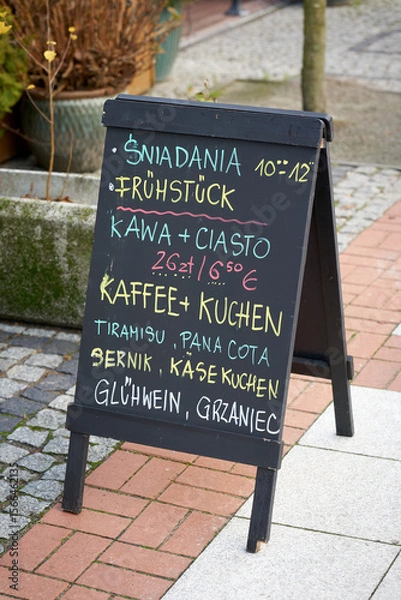 ŚNIADANIA 10°°-12°°
FRÜHSTÜCK
KAWA + CIASTO
26zł/6⁵⁰€
KAFFEE + KUCHEN
TIRAMISU, PANA COTA
SERNIK, KÄSEKUCHEN
GLÜHWEIN, GRZANIEC